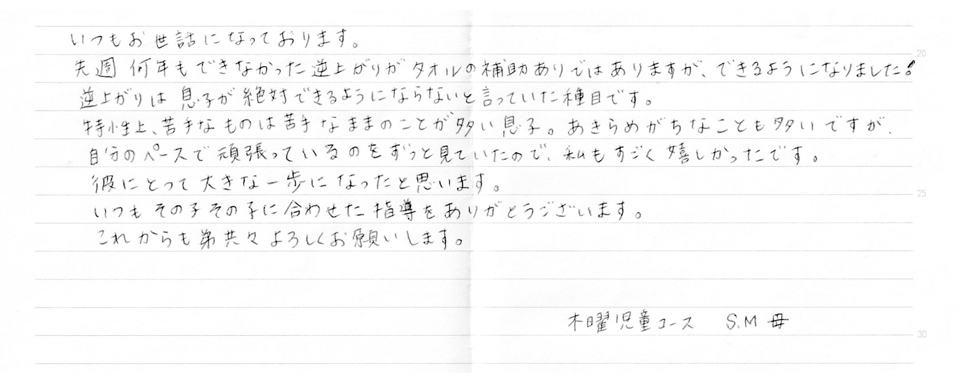 いつもお世話になっております。
先週 何年もできなかった逆上がりが タオルの補助ありではありますが、できるようになりました!
20
逆上がりは 息子が絶対できるようにならないと言っていた種目です。
特性上、苦手なものは苦手なままのことが多い息子。あきらめがちなことも多いですが、
自分のペースで頑張っているのをずっと見ていたので、私もすごく嬉しかったです。
彼にとって大きな一歩になったと思います。
25
いつもその子その子に合わせた指導をありがとうございます。
これからも弟共々よろしくお願いします。
木曜児童コース S.M 母
30